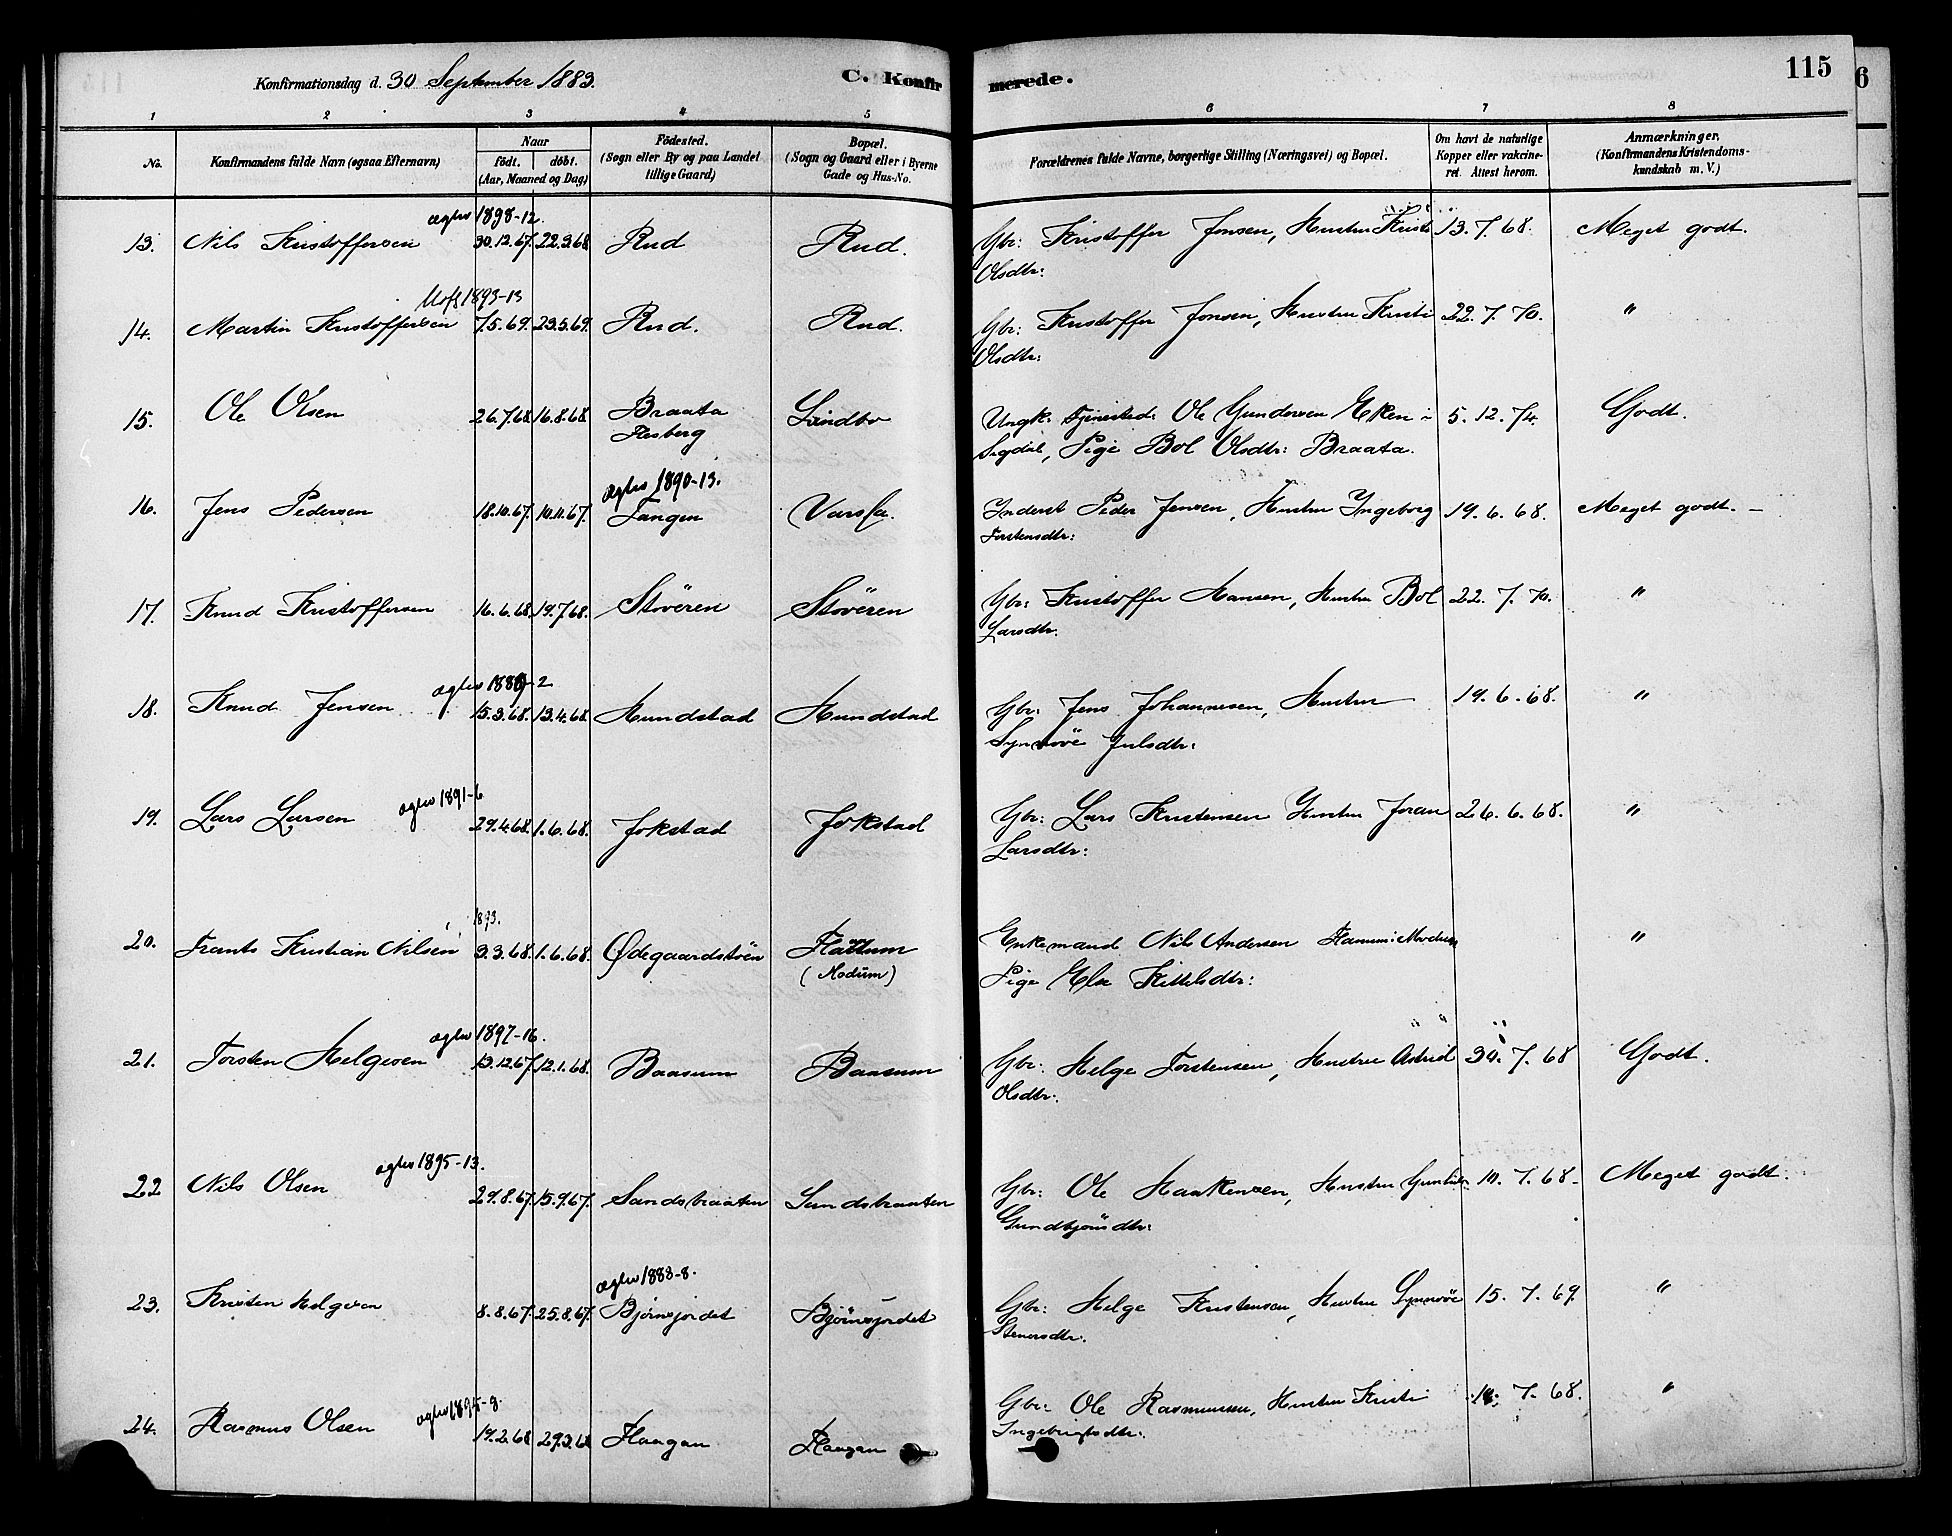 Konfirmationsdag d. 30 September 1883.
C. Konfir
merede.
115
6
1 2 3 4 5 6 7 8
No.
Konfirmandens fulde Navn (ogsaa Efternavn)
Naar
født. døbt.
(Aar, Maaned og Dag)
Fødested.
(Sogn eller By og paa Landet
tillige Gaard)
Bopæl.
(Sogn og Gaard eller i Byerne
Gade og Hus-No.
Forældrenes fulde Navne, borgerlige Stilling (Næringsvei) og Bopæl.
Om havt de naturlige
Kopper eller vakcine-
ret. Attest herom.
Anmærkninger.
(Konfirmandens Kristendoms-
kundskab m. V.)
ægtev 1898-12.
13. Nils Kristoffersen 30.12.67. 22.3.68 Rud Rud. Gbr: Kristoffer Jonsen, Hustru Kristi 13.7.68. Meget godt.
Olsdtr:
1893-13
14. Martin Kristoffersen 7.5.69. 23.5.69. Rud. Rud. Gbr: Kristoffer Jonsen, Hustru Kristi 22.7.70. "
Olsdtr:
15. Ole Olsen 26.7.68 16.8.68 Braata Lindbo Ungk: Tjenested: Ole Gundersen Eken i 5.12.74. Godt.
Flesberg
Sigdal, Pige Bol Olsdtr: Braata.
ægtev 1890-13.
16. Jens Pedersen 18.10.67. 10.11.67. Tangen Inderst Peder Jensen, Hustru Ingeborg 19.6.68. Meget godt. —
Torstensdtr:
17. Knud Kristoffersen 16.6.68. 19.7.68. Støveren Støveren Gbr: Kristoffer Hansen, Hustru Bol 22.7.70. "
Larsdtr.
18. Knud Jensen 15.3.68. 13.4.68. Hundstad Hundstad Gbr: Jens Johannesen, Hustru 19.6.68. "
Synnøve Julsdtr:
ægtev 1891-6
19. Lars Larsen 29.4.68. 1.6.68. Jokstad Jokstad Gbr: Lars Kristensen Hustru Joran 26.6.68. "
Larsdtr:
1893.
20. Frants Kristian Nilsen 3.3.68. 1.6.68. Ødegaardstøen (Modum) Enkemand Nils Andersen i Modum "
Pige Else Kittelsdtr:
ægtev 1897-16.
21. Torsten Helgesen 13.12.67. 12.1.68. Baasum Baasum Gbr: Helge Torstensen, Hustru Astrid 30.7.68 Godt.
Olsdtr:
ægtev 1895-13.
22 Nils Olsen 29.8.67. 15.9.67. Sandsbraaten Sandsbraaten Gbr: Ole Haakensen, Hustru 10.7.68. Meget godt.
Gundbjønsdtr:
ægtev 1888-8.
23. Kristen Helgesen 8.8.67. 25.8.67. Bjørnsjordet Bjørnsjordet Gbr: Helge Kristensen, Hustru Synnøve 15.7.69. "
Stenersdtr.
24. Rasmus Olsen 19.2.68 29.3.68 Haagan Haagan Gbr: Ole Rasmussen, Hustru Kristi 7.68. "
Ingebrigtsdtr: